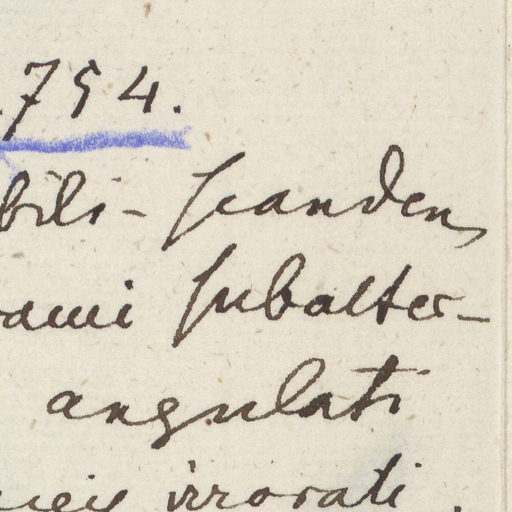 .754.
bili- scandens
rami subalter-
angulati
irrorati.